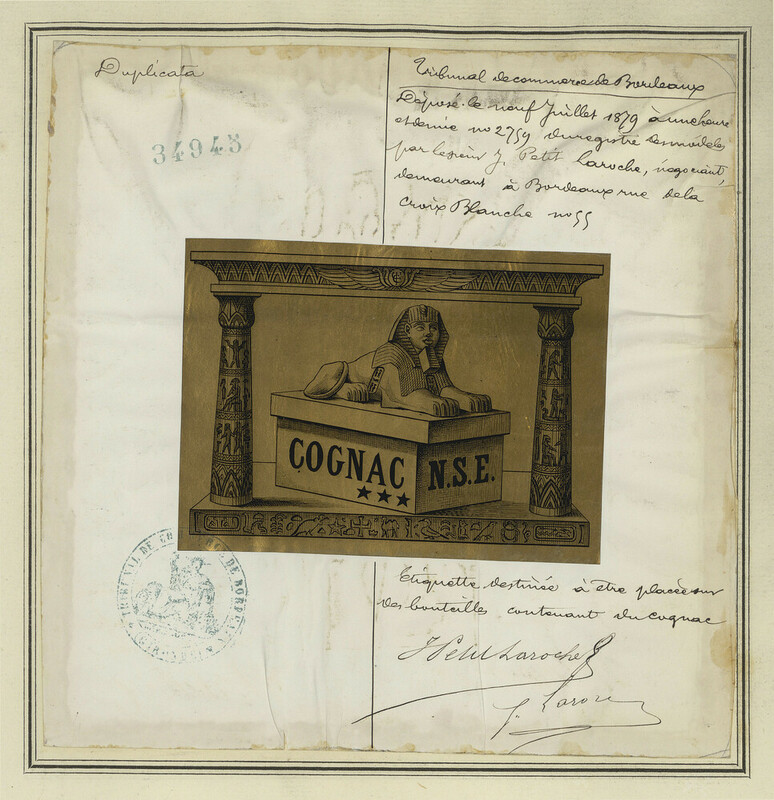 Duplicata
34945
Tribunal de commerce de Bordeaux
Déposé le neuf Juillet 1879 à une heure
et demie no 2759 du registre des modèles
par le sieur J. Petit Laroche, négociant,
demeurant à Bordeaux rue de la
Croix Blanche no 55
COGNAC N.S.E.
TRIBUNAL DE DE BORDEAUX
Etiquette destinée à être placée sur
des bouteilles contenant du cognac
J Petit Laroche